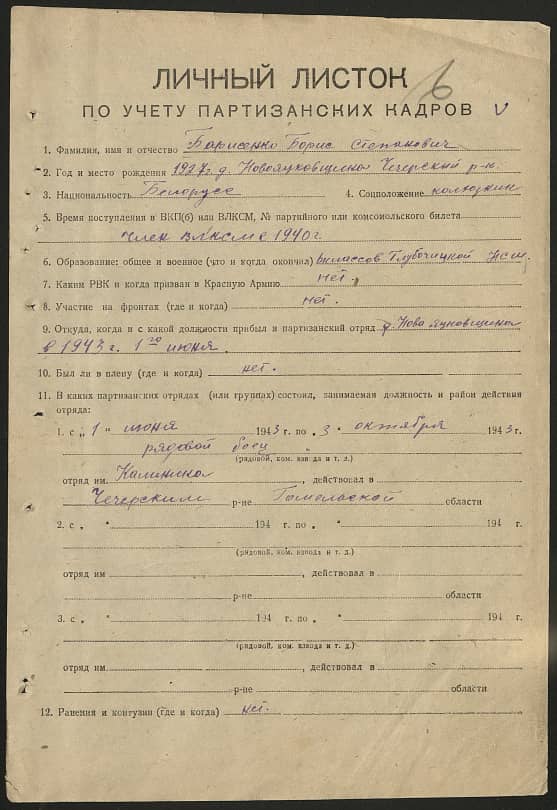 6
ЛИЧНЫЙ ЛИСТОК
ПО УЧЕТУ ПАРТИЗАНСКИХ КАДРОВ V
1. Фамилия, имя и отчество Барисенко Борис Степанович
2. Год и место рождения 1927г. д. Новояцковщина Чечерский р-н.
3. Национальность Белорус 4. Соцположение колхозник
5. Время поступления в ВКП(б) или ВЛКСМ, № партийного или комсомольского билета
Член ВЛКСМ с 1940 г
6. Образование: общее и военное (что и когда окончил) классов Глубочицкой НСШ
7. Каким РВК и когда призван в Красную Армию нет.
8. Участие на фронтах (где и когда) нет.
9. Откуда, когда и с какой должности прибыл в партизанский отряд д. Новояцковщина
в 1943 г. 1го июня.
10. Был ли в плену (где и когда) нет.
11. В каких партизанских отрядах (или группах) состоял, занимаемая должность и район действия
отряда:
1. с „ 1 " июня 1943 г. по „ 3 " октября 1943 г.
рядовой боец
(рядовой, ком. взвода и т. д.)
отряд им Калинина, действовал в
Чечерским р-не Гомельской области
2. с „ " 194 г. по „ " 194 г.
(рядовой, ком. взвода и т. д.)
отряд им , действовал в
р-не области
3. с „ " 194 г. по „ " 194 г.
(рядовой, ком. взвода и т. д.)
отряд им , действовал в
р-не области
12. Ранения и контузии (где и когда) нет.